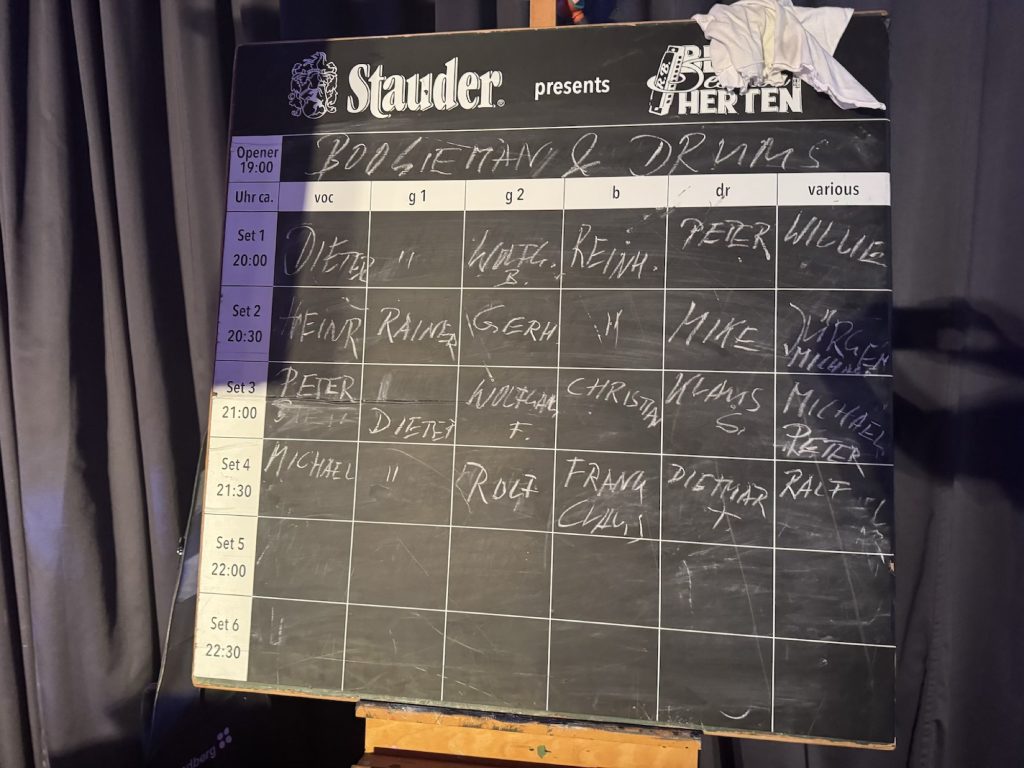 Stauder® presents HERTEN
Opener 19:00 BOOGIEMAN & DRUMS
Uhr ca. voc g 1 g 2 b dr various
Set 1 20:00 DIETER " WOLFG. B. REINH. PETER WILLIE
Set 2 20:30 HEINR RAINER GERH " MIKE JÜRGEN MICHAEL
Set 3 21:00 PETER DIETER WOLFGANG F. CHRISTIAN KLAUS G. MICHAEL PETER
Set 4 21:30 MICHAEL " ROLF FRANK CLAUS DIETMAR RALF
Set 5 22:00
Set 6 22:30